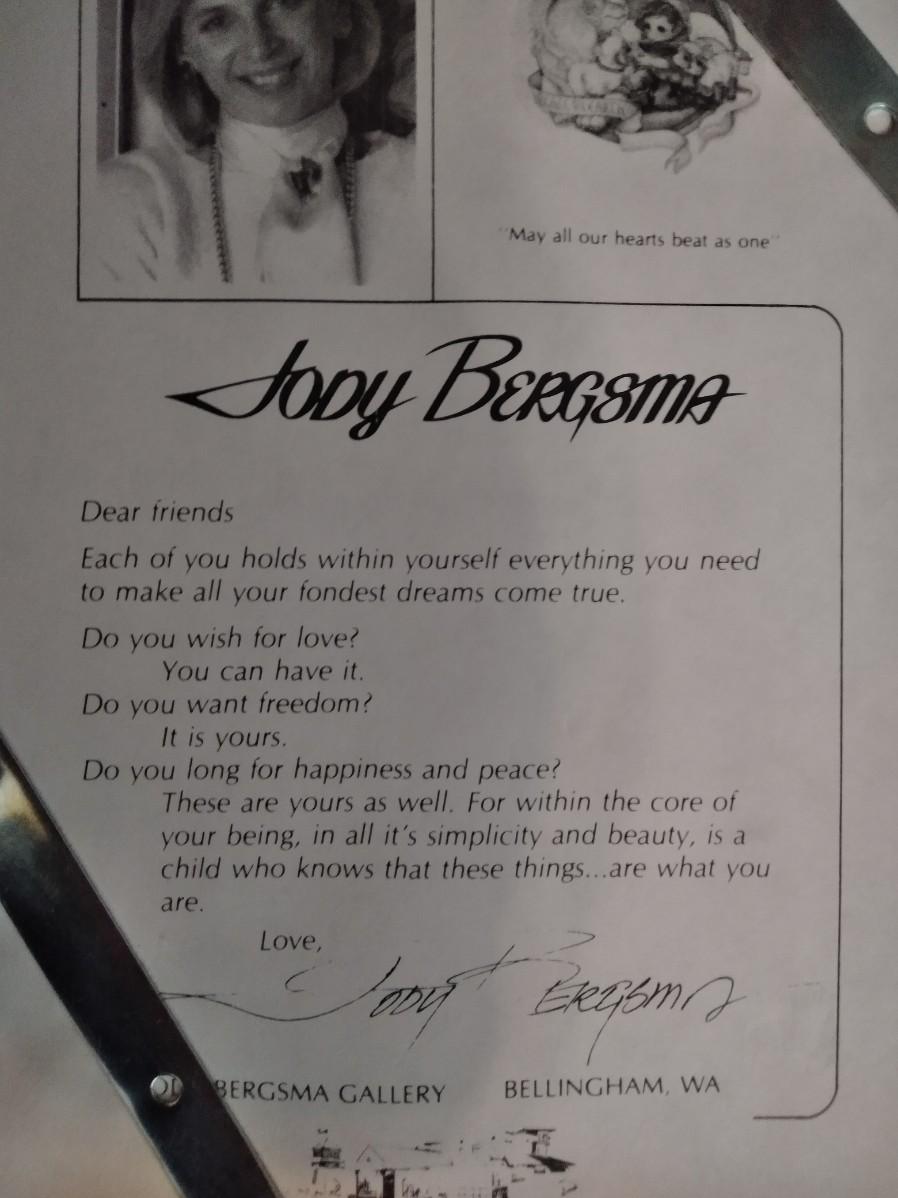 "May all our hearts beat as one"
JODY BERGSMA
Dear friends
Each of you holds within yourself everything you need
to make all your fondest dreams come true.
Do you wish for love?
You can have it.
Do you want freedom?
It is yours.
Do you long for happiness and peace?
These are yours as well. For within the core of
your being, in all it's simplicity and beauty, is a
child who knows that these things...are what you
are.
Love,
JODY BERGSMA
BERGSMA GALLERY BELLINGHAM, WA